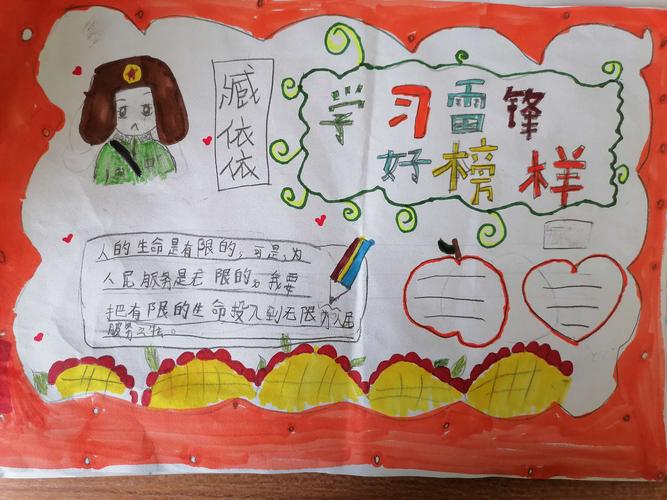 臧依依
学习雷锋
好榜样
人的生命是有限的,可是,为
人民服务是无限的。我要
把有限的生命投入到无限为人民
服务之中。